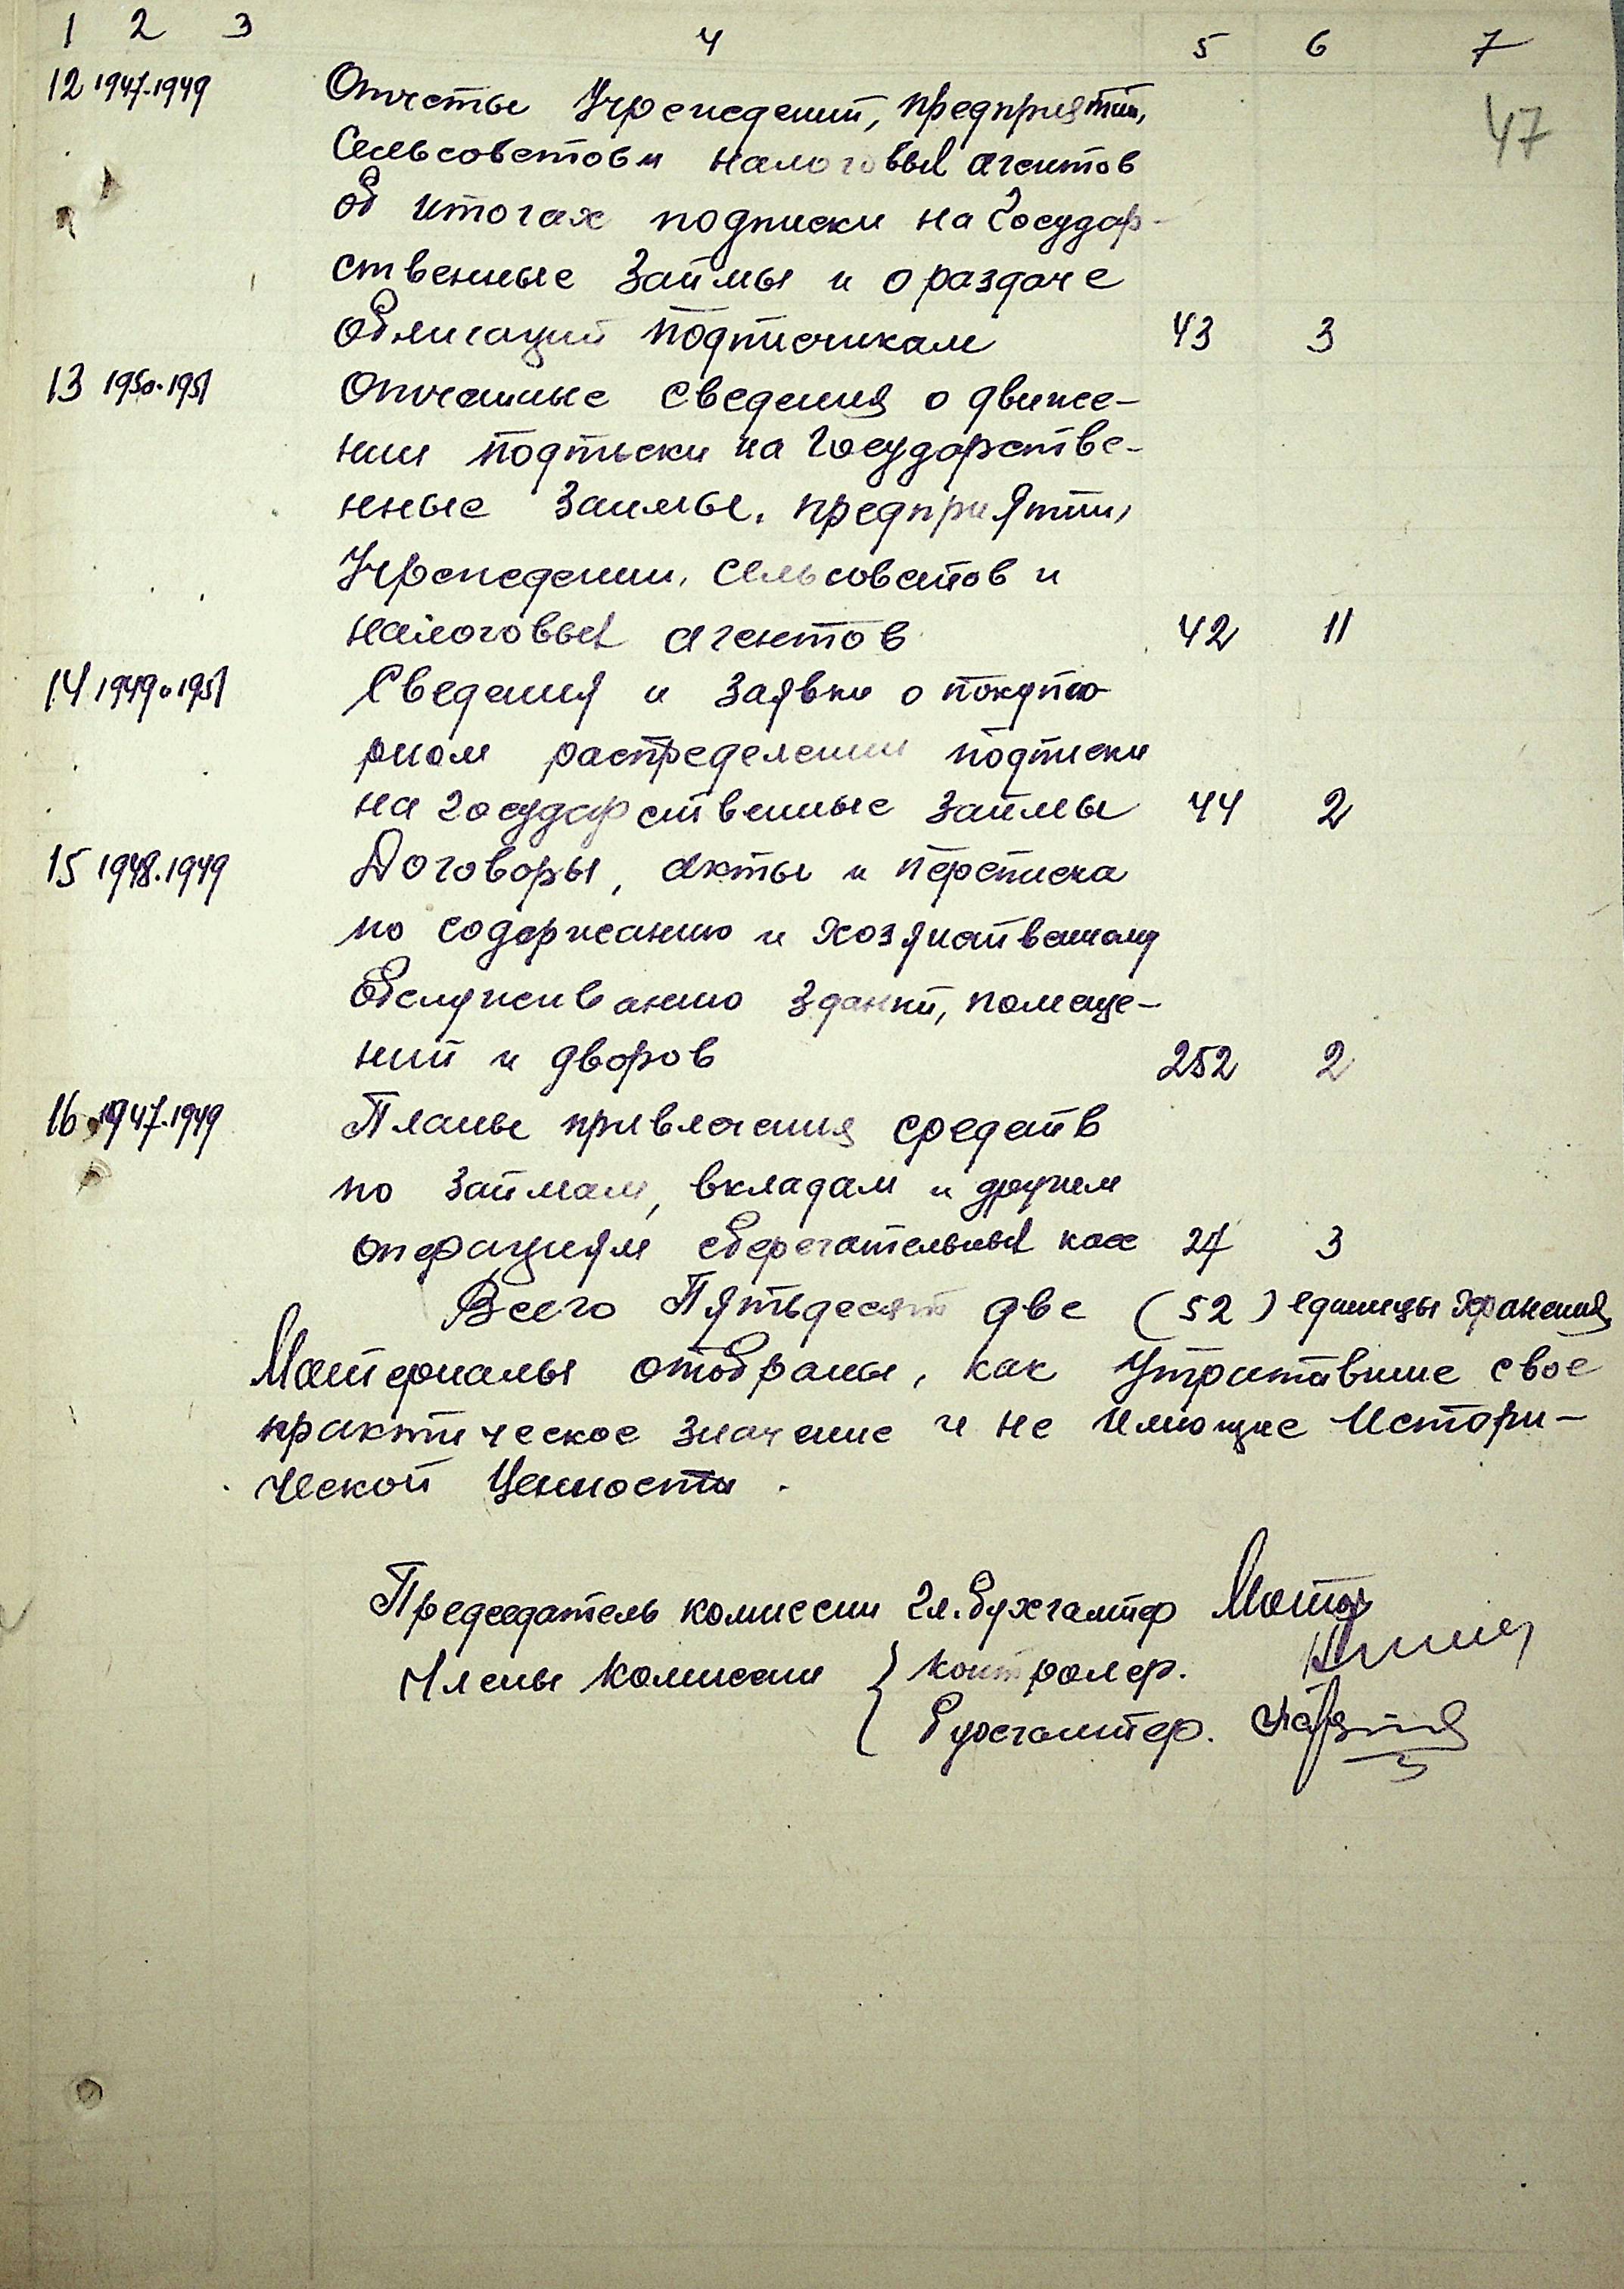 1 2 3 4 5 6 7
47
12 1947-1949 Отчеты Учреждений, предприятий,
Сельсоветов и налоговых агентов
об итогах подписки на Государ-
ственные Займы и о раздаче
облигаций подписчикам 43 3
13 1950-1951 Отчетные сведения о движе-
нии подписки на Государстве-
нные Займы. предприятий,
Учреждении, сельсоветов и
налоговых агентов 42 11
14 1949-1951 Сведения и заявки о покупю
рном распределении подписки
на государственные займы 44 2
15 1948-1949 Договоры, акты и переписка
по содержанию и хозяйственому
обслуживанию зданий, помеще-
ний и дворов 252 2
16 1947-1949 Планы привлечения средств
по займам, вкладам и другим
операциям сберегательных касс 27 3
Всего Пятьдесят две (52) единицы хранения
Материалы отобраны, как Утратившие свое
практическое значение и не имеющие Истори-
ческой Ценности.
Председатель комиссии Гл. бухгалтер
Члены комиссии { контролер.
бухгалтер.